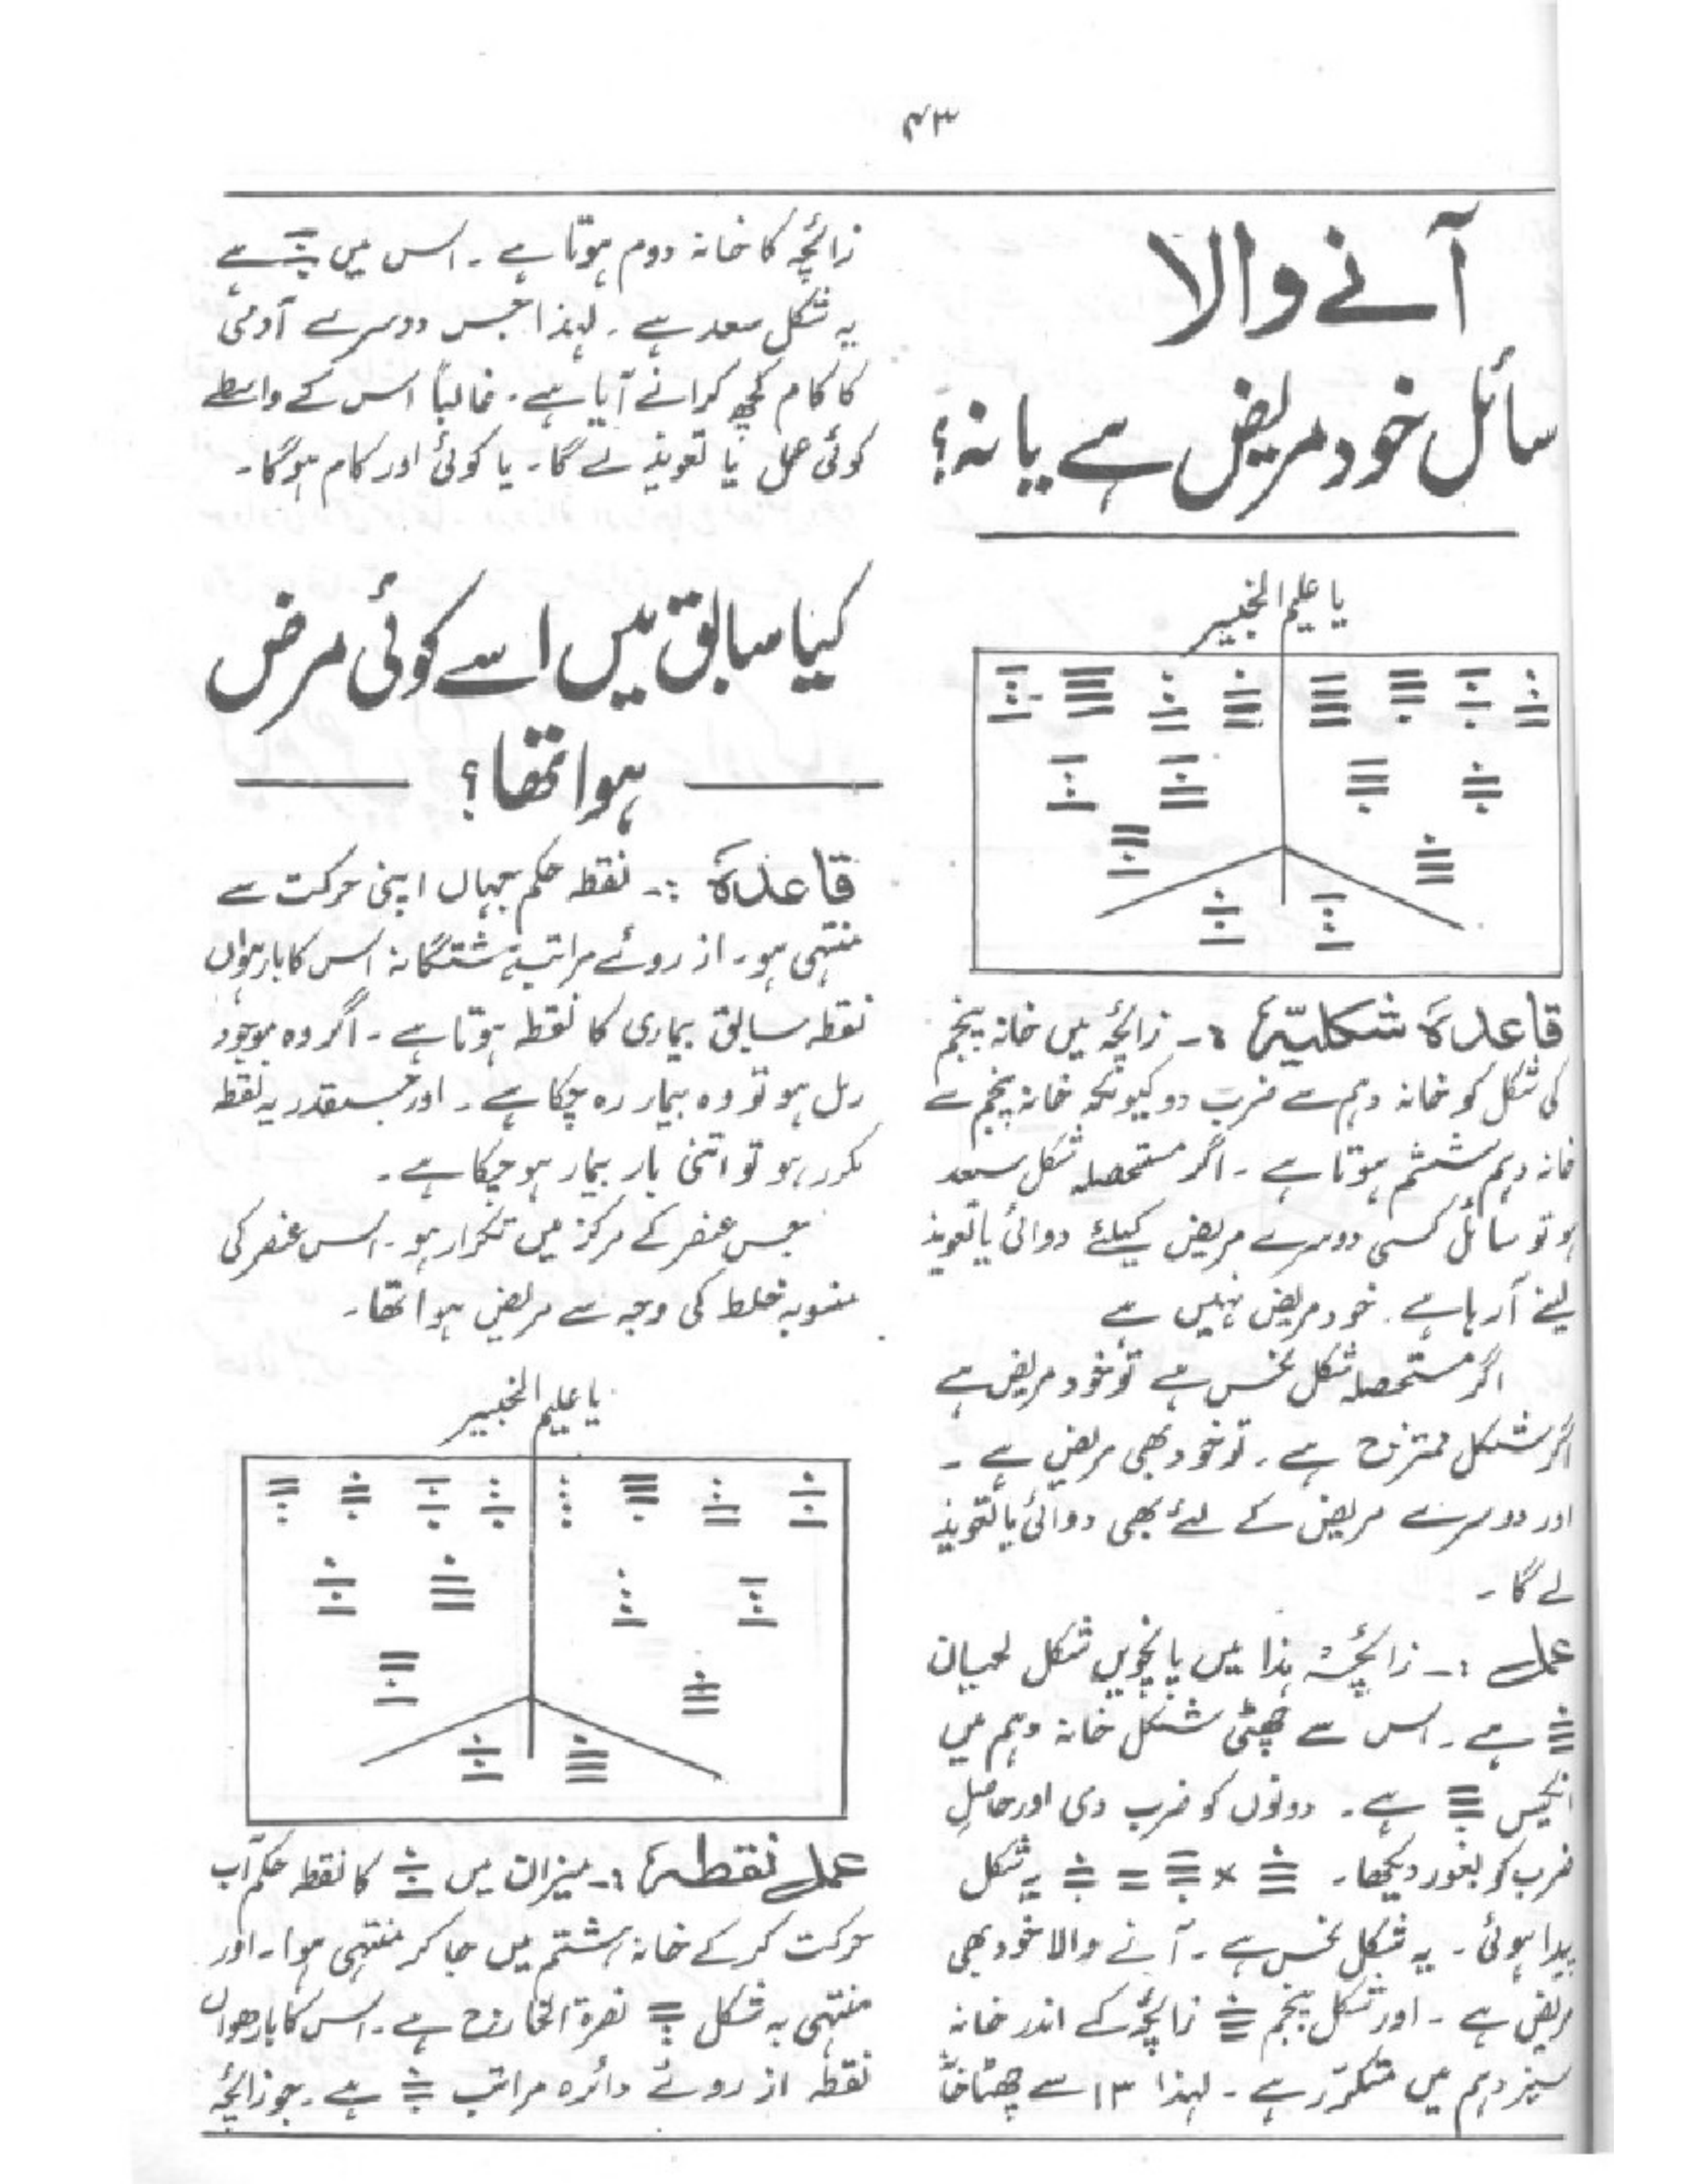 ۴۳
آنے والا
سائل خود مریض ہے یا نہ؟
یا علیم الخبیر
قاعدہ شکلیہ :- زائچہ میں خانہ پنجم
کی شکل کو خانہ دہم سے ضرب دو کیونکہ خانہ پنجم سے
خانہ دہم ششم ہوتا ہے ۔ اگر مستحصلہ شکل سعد
ہو تو سائل کسی دوسرے مریض کیلئے دوائی یا تعویذ
لینے آرہا ہے ۔ خود مریض نہیں ہے
اگر مستحصلہ شکل نحس ہے تو خود مریض ہے
اگر شکل ممتزج ہے ۔ تو خود بھی مریض ہے ۔
اور دوسرے مریض کے لئے بھی دوائی یا تعویذ
لے گا ۔
عمل :- زائچہ ہذا میں پانچویں شکل لحیان
ہے ۔ اس سے چھٹی شکل خانہ دہم میں
انکیس ہے ۔ دونوں کو ضرب دی اور حاصل
ضرب کو بغور دیکھا ۔ × = یہ شکل
پیدا ہوئی ۔ یہ شکل نحس ہے ۔ آنے والا خود بھی
مریض ہے ۔ اور شکل پنجم زائچہ کے اندر خانہ
سیزدہم میں متکرر ہے ۔ لہذا ۱۳ سے چھٹا خانہ
زائچہ کا خانہ دوم ہوتا ہے ۔ اس میں ہے
یہ شکل سعد ہے ۔ لہذا جس دوسرے آدمی
کا کام کچھ کرانے آیا ہے ۔ غالباً اس کے واسطے
کوئی عمل یا تعویذ لے گا ۔ یا کوئی اور کام ہوگا ۔
کیا سابق میں اسے کوئی مرض
ہوا تھا؟
قاعدہ :- نقطہ حکم جہاں اپنی حرکت سے
منتہی ہو ۔ از روئے مراتب ہشتگانہ اس کا بارہواں
نقطہ سابق بیماری کا نقطہ ہوتا ہے ۔ اگر وہ موجود
رمل ہو تو وہ بیمار رہ چکا ہے ۔ اور جسقدر یہ نقطہ
مکرر ہو تو اتنی بار بیمار ہو چکا ہے ۔
جس عنصر کے مرکز میں تکرار ہو ۔ اس عنصر کی
منسوبہ خلط کی وجہ سے مریض ہوا تھا ۔
یا علیم الخبیر
عمل نقطہ :- میزان میں کا نقطہ حکم آب
حرکت کر کے خانہ ہشتم میں جا کر منتہی ہوا ۔ اور
منتہی بہ شکل نصرۃ الخارج ہے ۔ اس کا بارھواں
نقطہ از روئے دائرہ مراتب ہے ۔ جو زائچہ